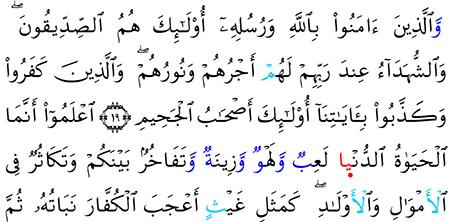 وَٱلَّذِينَ ءَامَنُوا۟ بِٱللَّهِ وَرُسُلِهِۦٓ أُو۟لَـٰٓئِكَ هُمُ ٱلصِّدِّيقُونَ ۖ
وَٱلشُّهَدَآءُ عِندَ رَبِّهِمْ لَهُمْ أَجْرُهُمْ وَنُورُهُمْ ۖ وَٱلَّذِينَ كَفَرُوا۟
وَكَذَّبُوا۟ بِـَٔايَـٰتِنَآ أُو۟لَـٰٓئِكَ أَصْحَـٰبُ ٱلْجَحِيمِ ۝١٩ ٱعْلَمُوٓا۟ أَنَّمَا
ٱلْحَيَوٰةُ ٱلدُّنْيَا لَعِبٌ وَلَهْوٌ وَزِينَةٌ وَتَفَاخُرٌۢ بَيْنَكُمْ وَتَكَاثُرٌ فِى
ٱلْأَمْوَٰلِ وَٱلْأَوْلَـٰدِ ۖ كَمَثَلِ غَيْثٍ أَعْجَبَ ٱلْكُفَّارَ نَبَاتُهُۥ ثُمَّ